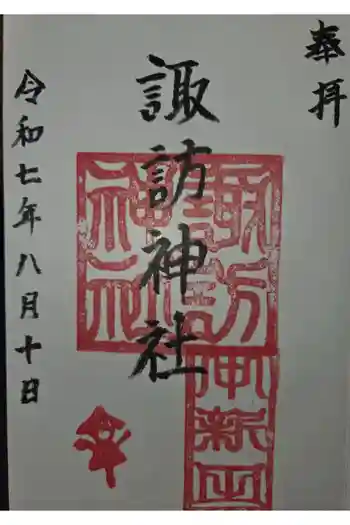 奉拝
諏訪神社
令和七年八月十日
諏訪
神社